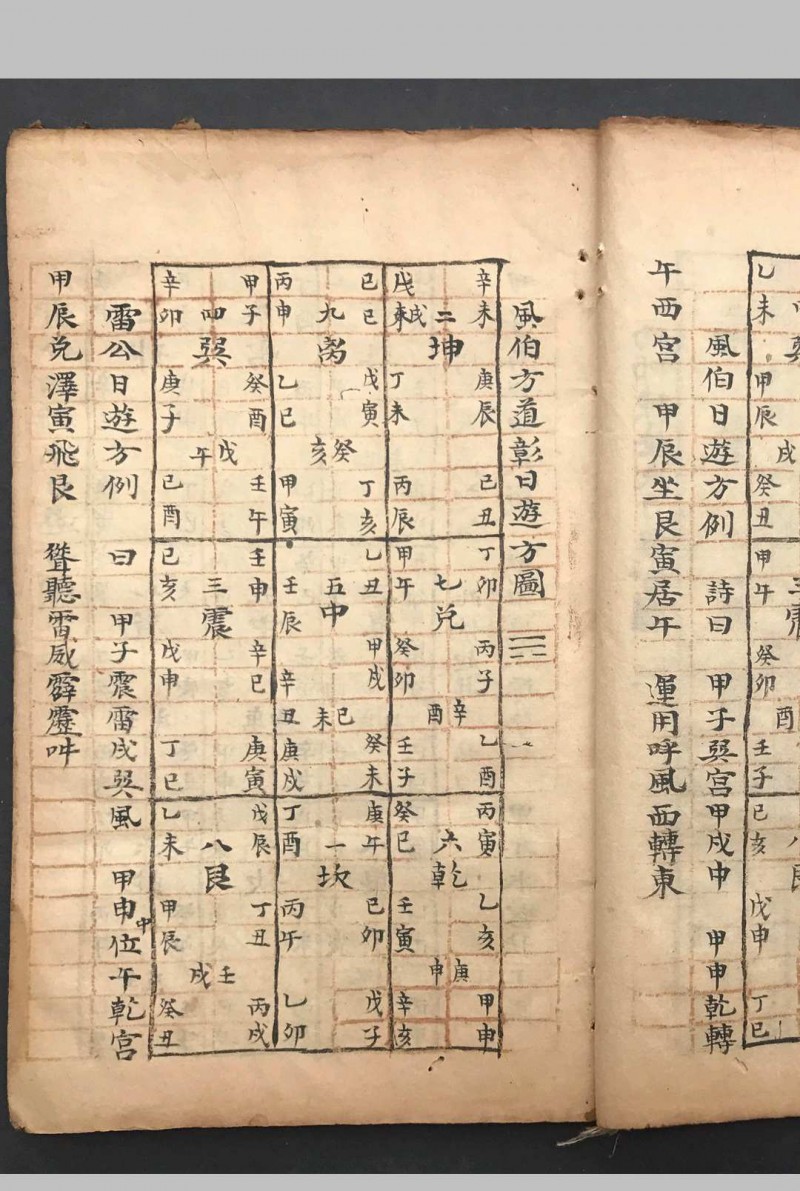 乙未
甲辰
癸丑
甲午
癸卯
壬子
己亥
戊申
丁巳
風伯日遊方例　詩曰　甲子巽宮甲戌中　甲申乾轉
午西宮　甲辰坐艮寅居午　運用呼風西轉東
風伯方道彰日遊方圖
辛未　戊戌
二　未
坤
庚辰　丁未
己丑　丙辰
己巳　丙申
九
离
戊寅　乙巳
癸亥
丁亥　甲寅
甲子　辛卯
四
巽
癸酉　庚子
戊午
壬午　己酉
丁卯　甲午
七
兑
丙子　癸卯
辛酉
乙酉　壬子
乙丑　壬辰
五
中
甲戌　辛丑
己未
癸未　庚戌
壬申　己亥
三
震
辛巳　戊申
庚寅　丁巳
丙寅　癸巳
六
乾
乙亥　壬寅
庚申
甲申　辛亥
庚午　丁酉
一
坎
己卯　丙午
戊子　乙卯
戊辰　乙未
八
艮
丁丑　甲辰
壬戌
丙戌　癸丑
雷公日遊方例　曰　甲子震雷戌巽風　甲申中位午乾宮
甲辰兑澤寅飛艮　聳聽雷威霹靂吽